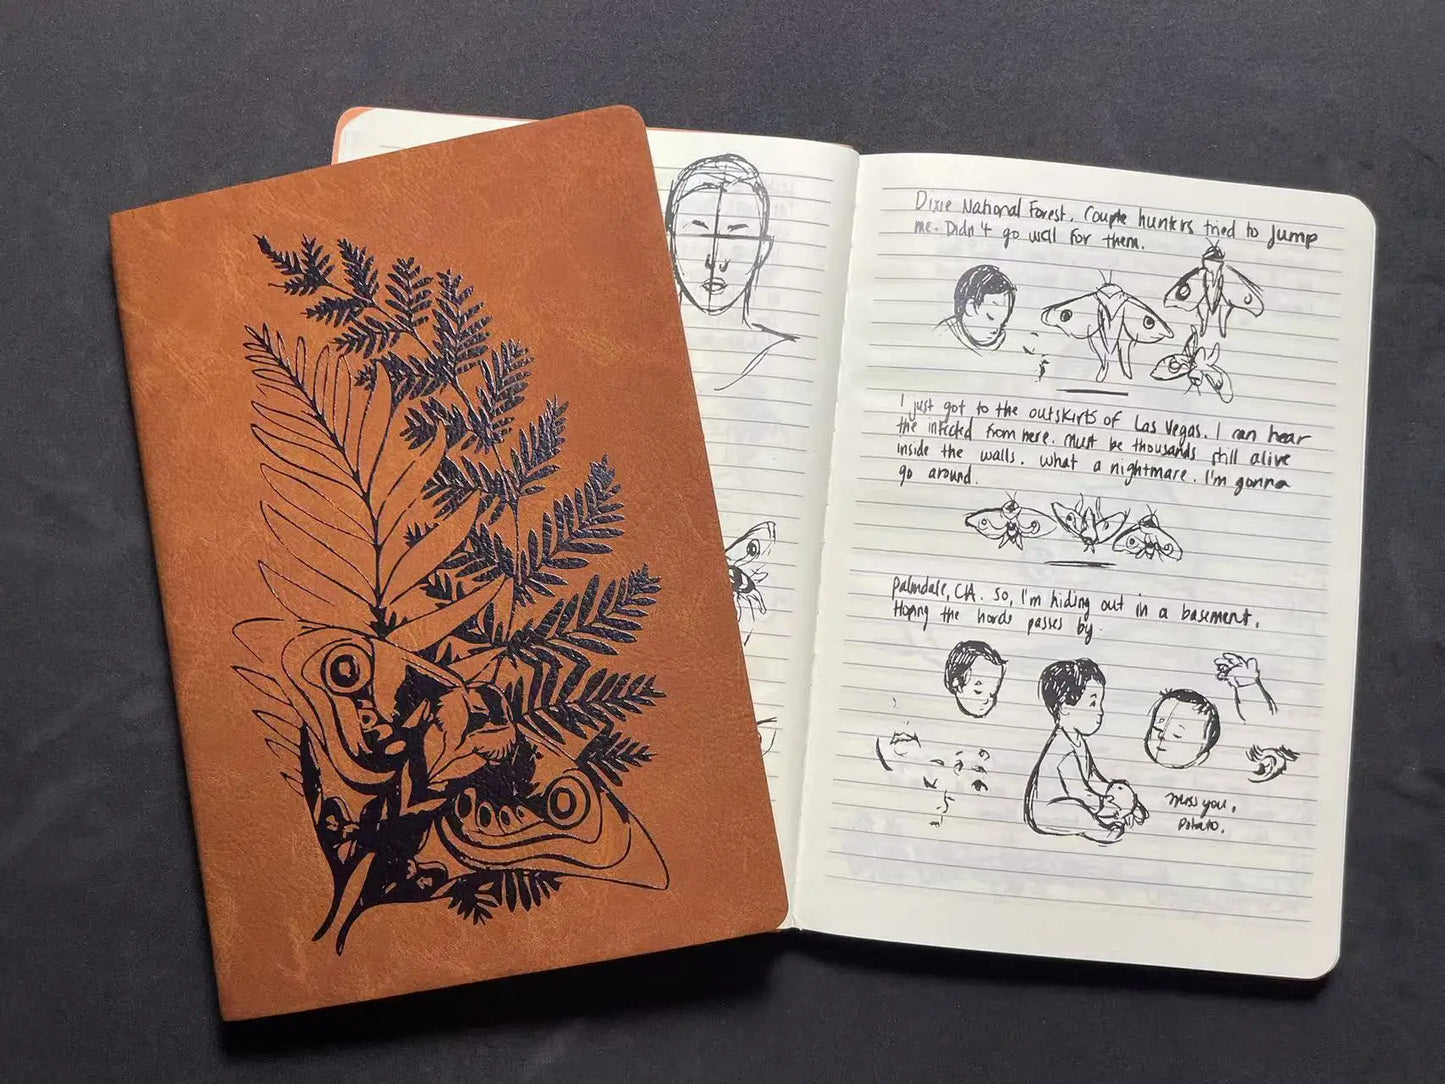 Dixie National Forest. Couple hunters tried to jump
me. Didn't go well for them.
I just got to the outskirts of Las Vegas. I can hear
the infected from here. Must be thousands still alive
inside the walls. What a nightmare. I'm gonna
go around.
Palmdale, CA. So, I'm hiding out in a basement.
Hoping the horde passes by.
Miss you,
Potato.